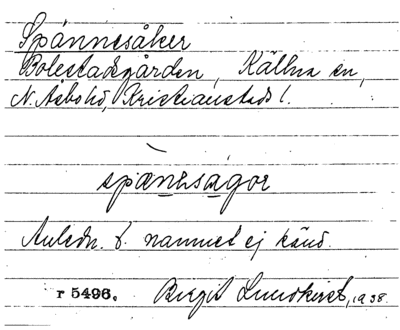 Spännesåker
Bolestadsgården, Källna sn,
N. Åsbo hd, Kristianstads l.
spæ̀nesågor
Anledn. t. namnet ej känd.
r 5496. Birgit Lundkvist, 1938.